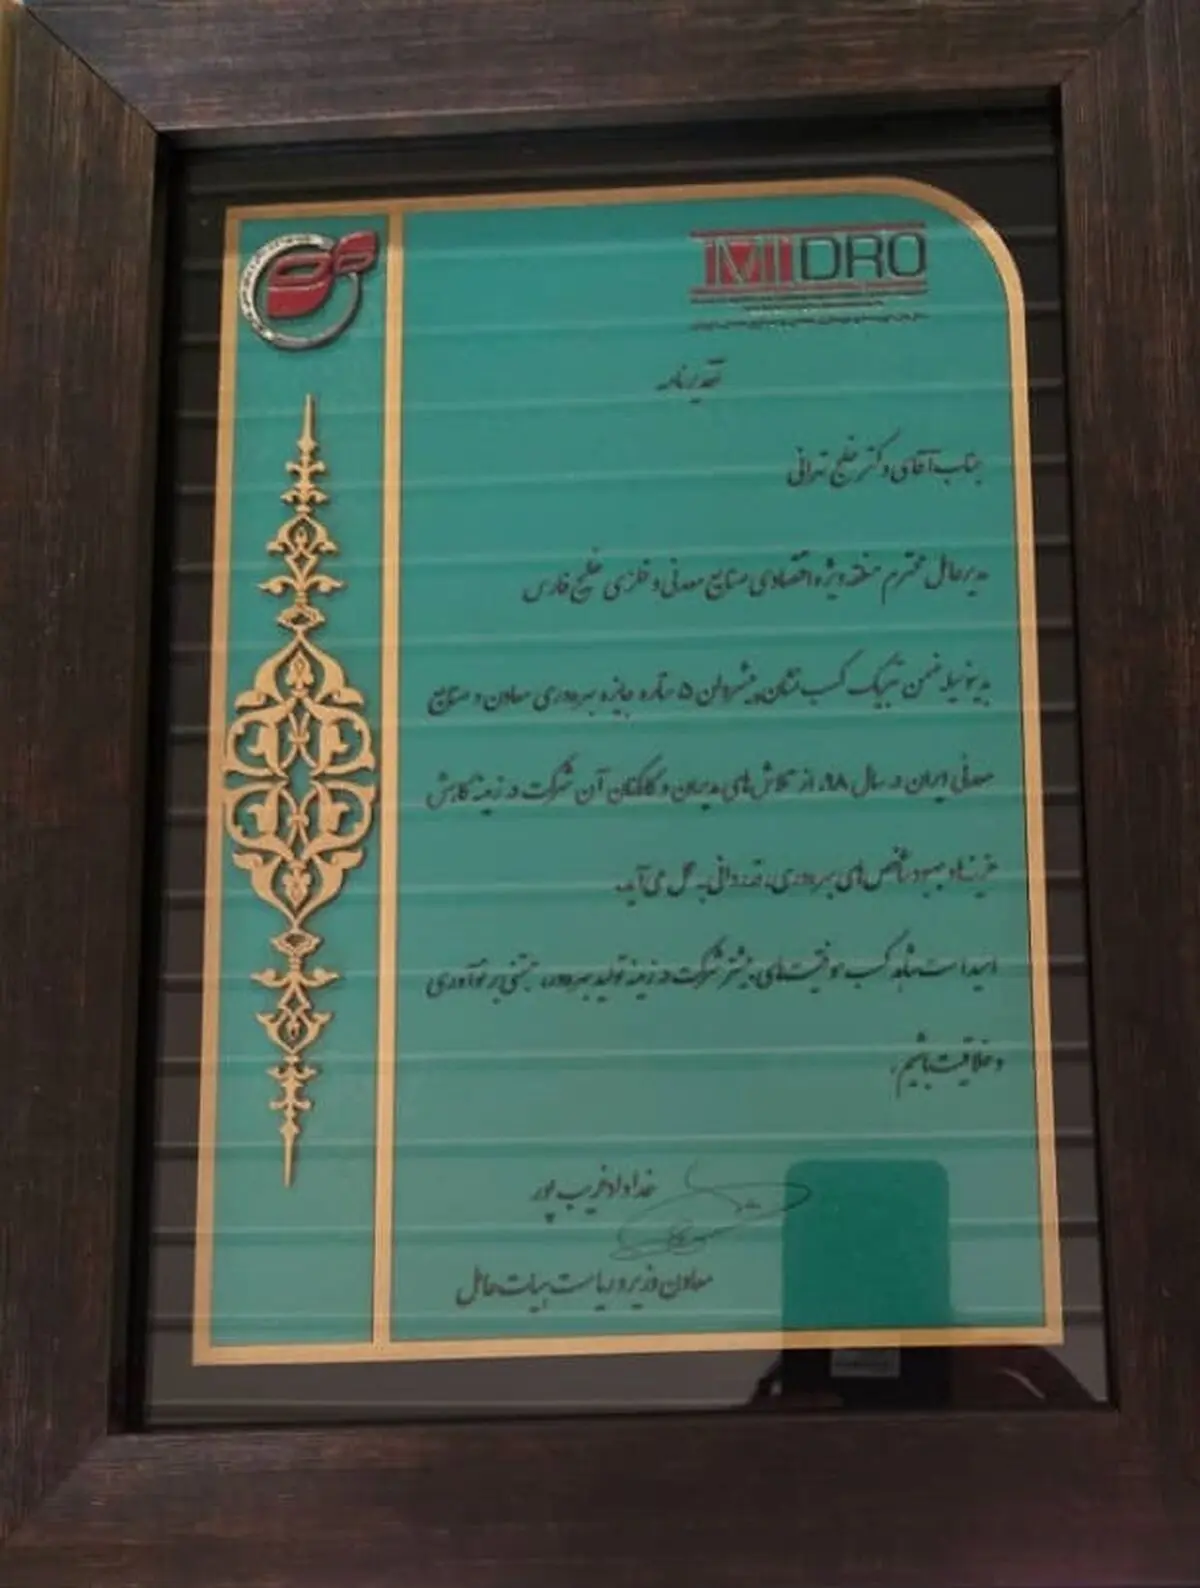 IMIDRO
تقدیرنامه
جناب آقای دکتر خلیج تهرانی
مدیرعامل محترم منطقه ویژه اقتصادی صنایع معدنی و فلزی خلیج فارس
بدینوسیله ضمن تبریک کسب نشان پیشروان ۵ ستاره جایزه بهره‌وری معادن و صنایع
معدنی ایران در سال ۹۸، از تلاش‌های مدیران و کارکنان آن شرکت در زمینه کاهش
هزینه‌ها و بهبود شاخص‌های بهره‌وری، قدردانی به عمل می‌آید.
امید است شاهد کسب موفقیت‌های بیشتر شرکت در زمینه تولید بهره‌ور، مبتنی بر نوآوری
و خلاقیت باشیم.
خداداد غریب پور
معاون وزیر و ریاست هیات عامل